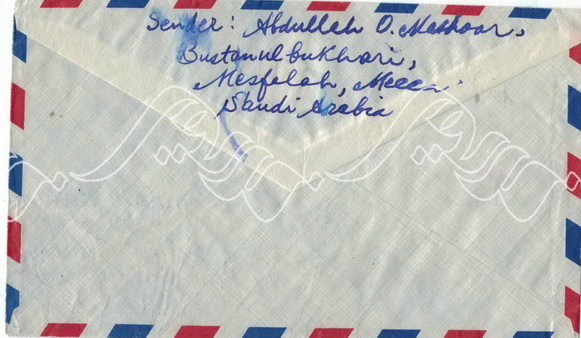 Sender: Abdullah O. Mashoor,
Bustanulbukhari,
Mesfalah, Mecca
Saudi Arabia